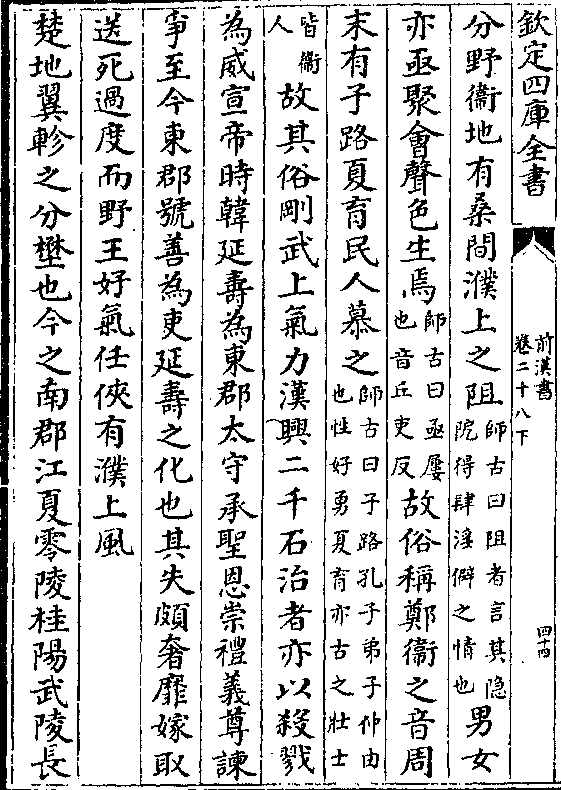 欽定四庫全書
前漢書
卷二十八下
四十四
分野衞地有桑間濮上之阻師古曰阻者言其隐阨得肆淫僻之情也男女
亦亟聚會聲色生焉師古曰亟屢也音丘吏反故俗稱鄭衞之音周
末有子路夏育民人慕之師古曰子路孔子弟子仲由也性好勇夏育亦古之壯士
皆衞人故其俗剛武上氣力漢興二千石治者亦以殺戮
為威宣帝時韓延壽為東郡太守承聖恩崇禮義尊諫
爭至今東郡號善為吏延壽之化也其失頗奢靡嫁取
送死過度而野王好氣任俠有濮上風
楚地翼軫之分壄也今之南郡江夏零陵桂陽武陵長